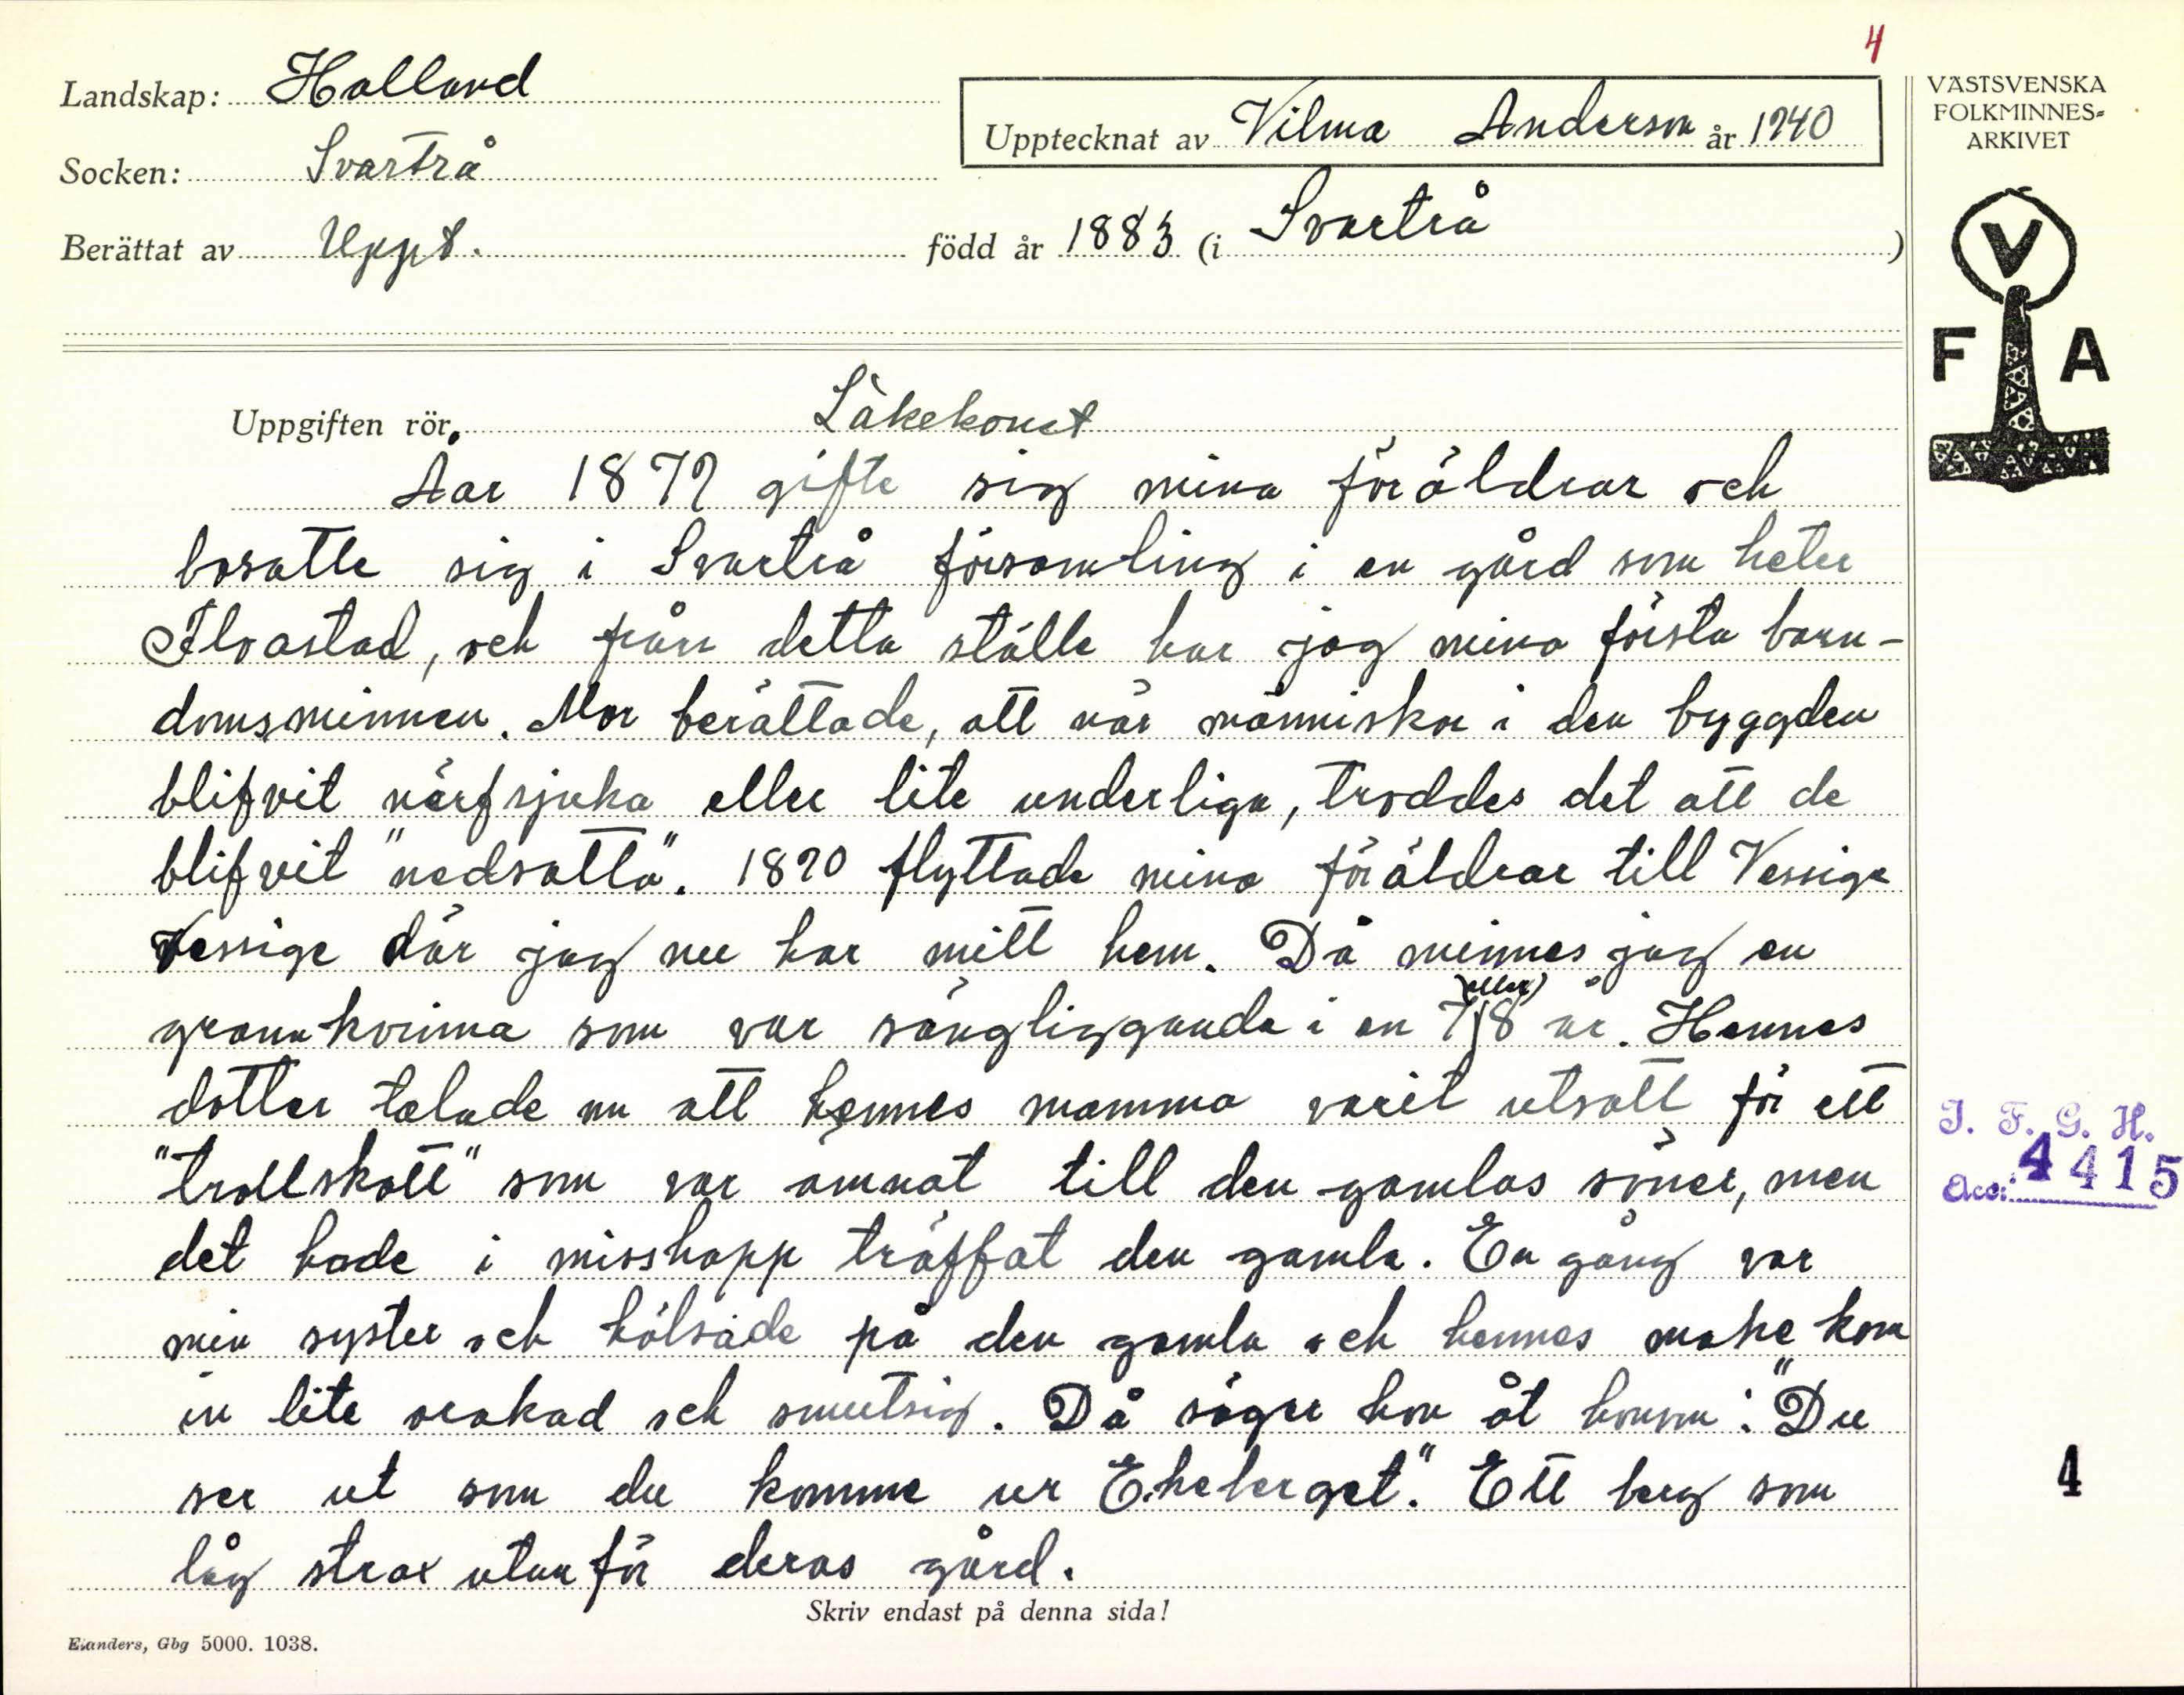 4
Landskap: Halland
Upptecknat av Vilma Anderson år 1940
VÄSTSVENSKA
FOLKMINNES-
ARKIVET
Socken: Svartrå
Berättat av Uppt. född år 1883 (i Svartrå )
V
F A
Uppgiften rör Läkekonst
Aar 1879 gifte sig mina föräldrar och
bosatte sig i Svartrå församling i en gård som heter
Floastad, och från detta ställe har jag mina första barn-
domsminnen. Mor berättade, att när människor i den byggden
blifvit närfsjuka eller lite underliga, troddes det att de
blifvit "nedsatta". 1890 flyttade mina föräldrar till Vessige
Vessige där jag nu har mitt hem. Då minnes jag en
grannkvinna som var sängliggande i en 7 (eller) 8 år. Hennes
dotter talade om att hennes mamma varit utsatt för ett
"trollskott" som var ämnat till den gamlas söner, men
det hade i misshapp träffat den gamla. En gång var
min syster och hälsade på den gamla och hennes make kom
in lite orakad och smutsig. Då säger hon åt honom: "Du
ser ut som du komme ur Ekeberget." Ett berg som
låg strax utanför deras gård.
Skriv endast på denna sida!
Elanders, Gbg 5000. 1038.
I. F. G. H.
Acc: 4415
4